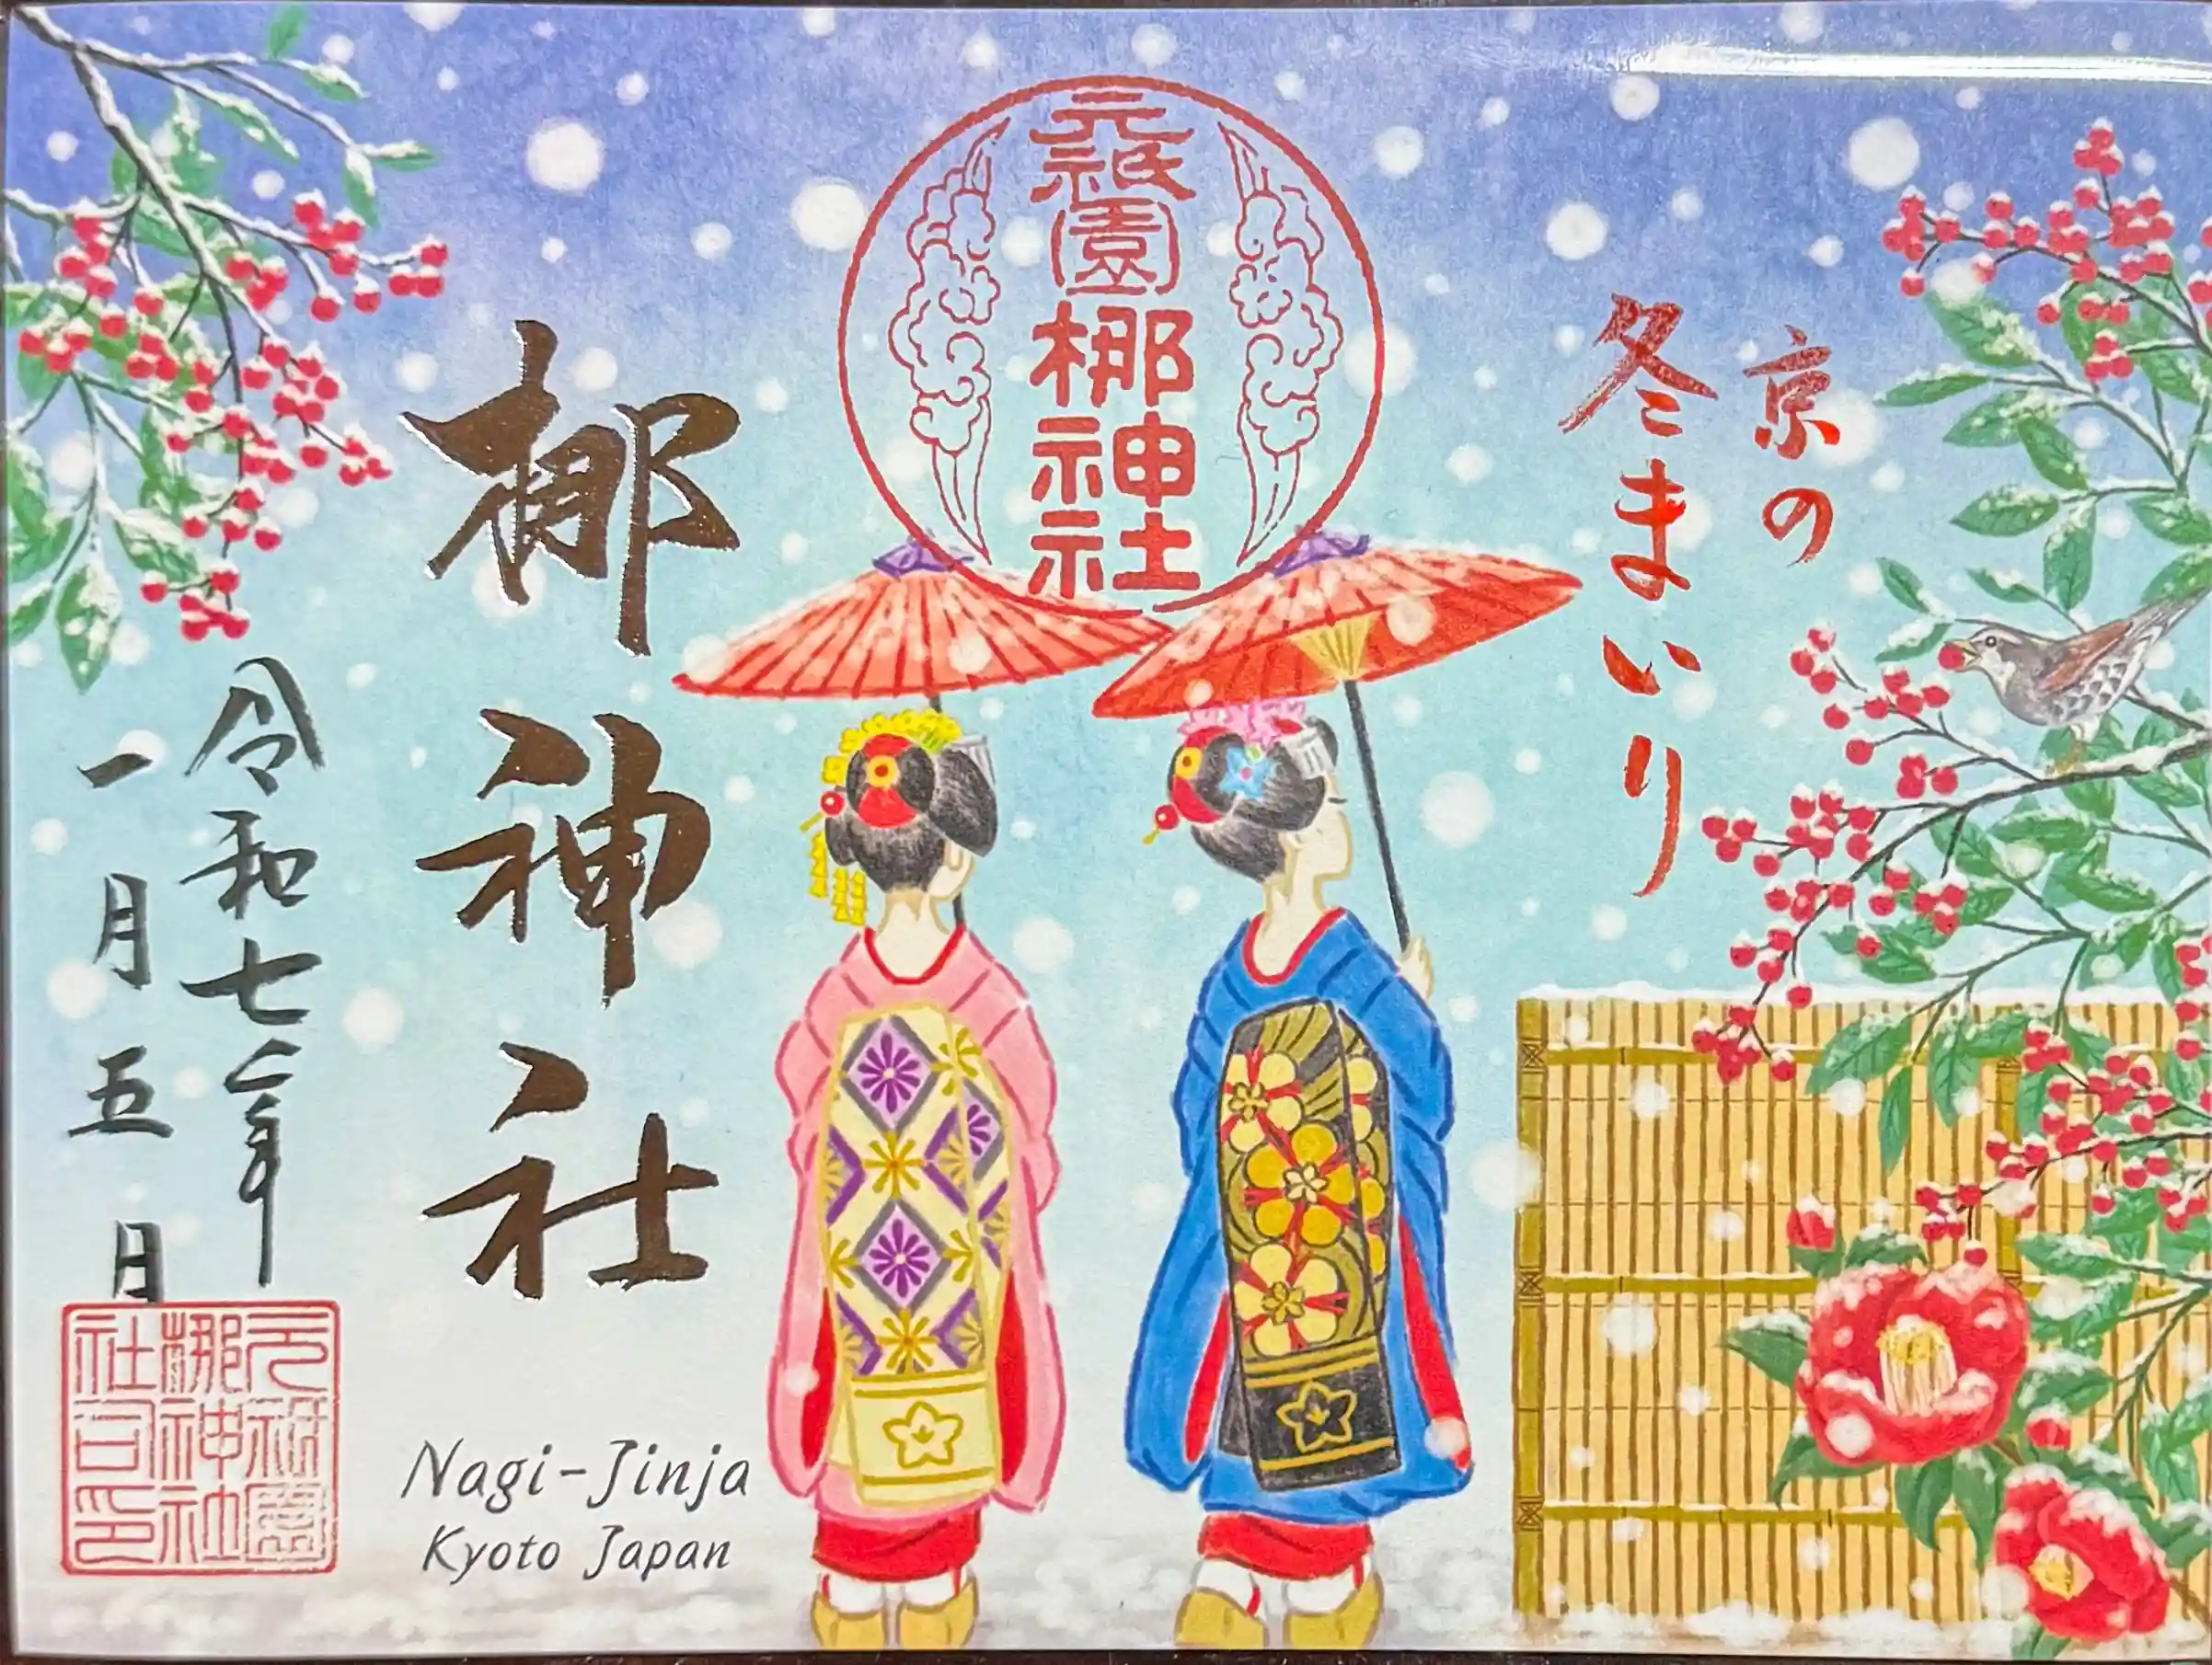 京の
冬まいり
元祇園梛神社
梛神社
令和七年
一月五日
元祇園
梛神社
社司印
Nagi-Jinja
Kyoto Japan